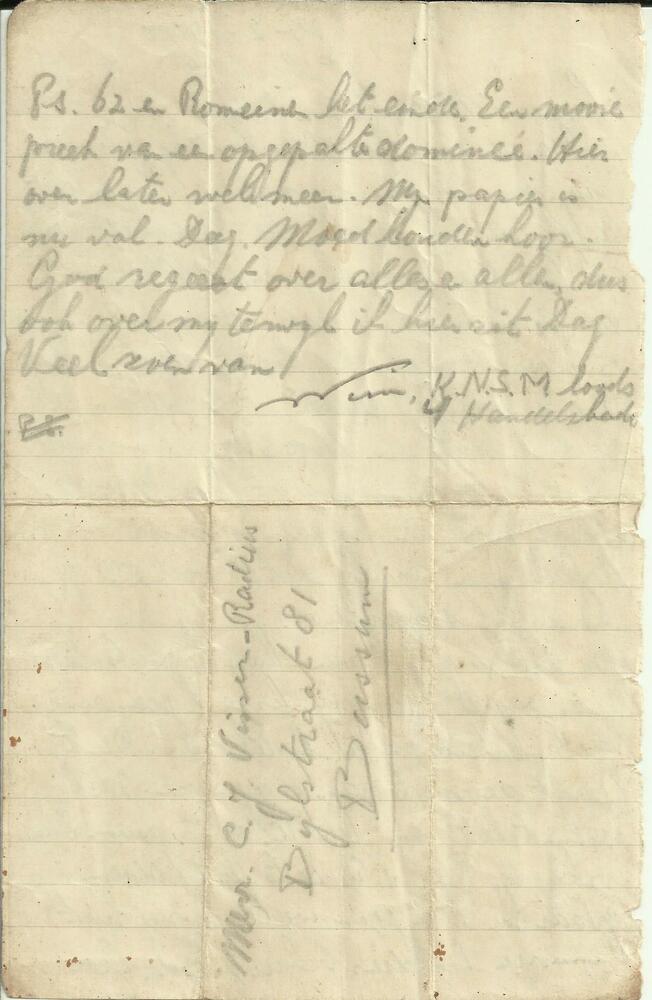 Ps. 62 en Romeinen het einde. Een mooie
preek van een opgepakte dominee. Hier
over later wel meer. Mijn papier is
nu vol. Dag. Moed houden hoor.
God regeert over alles en allen, dus
ook over mij terwijl ik hier zit. Dag
Veel zoenen van
Wim, K.N.S.M loods
4 Handelskade
P.S.
Mevr. C. J. Visser-Radius
Bijlstraat 81
Bussum